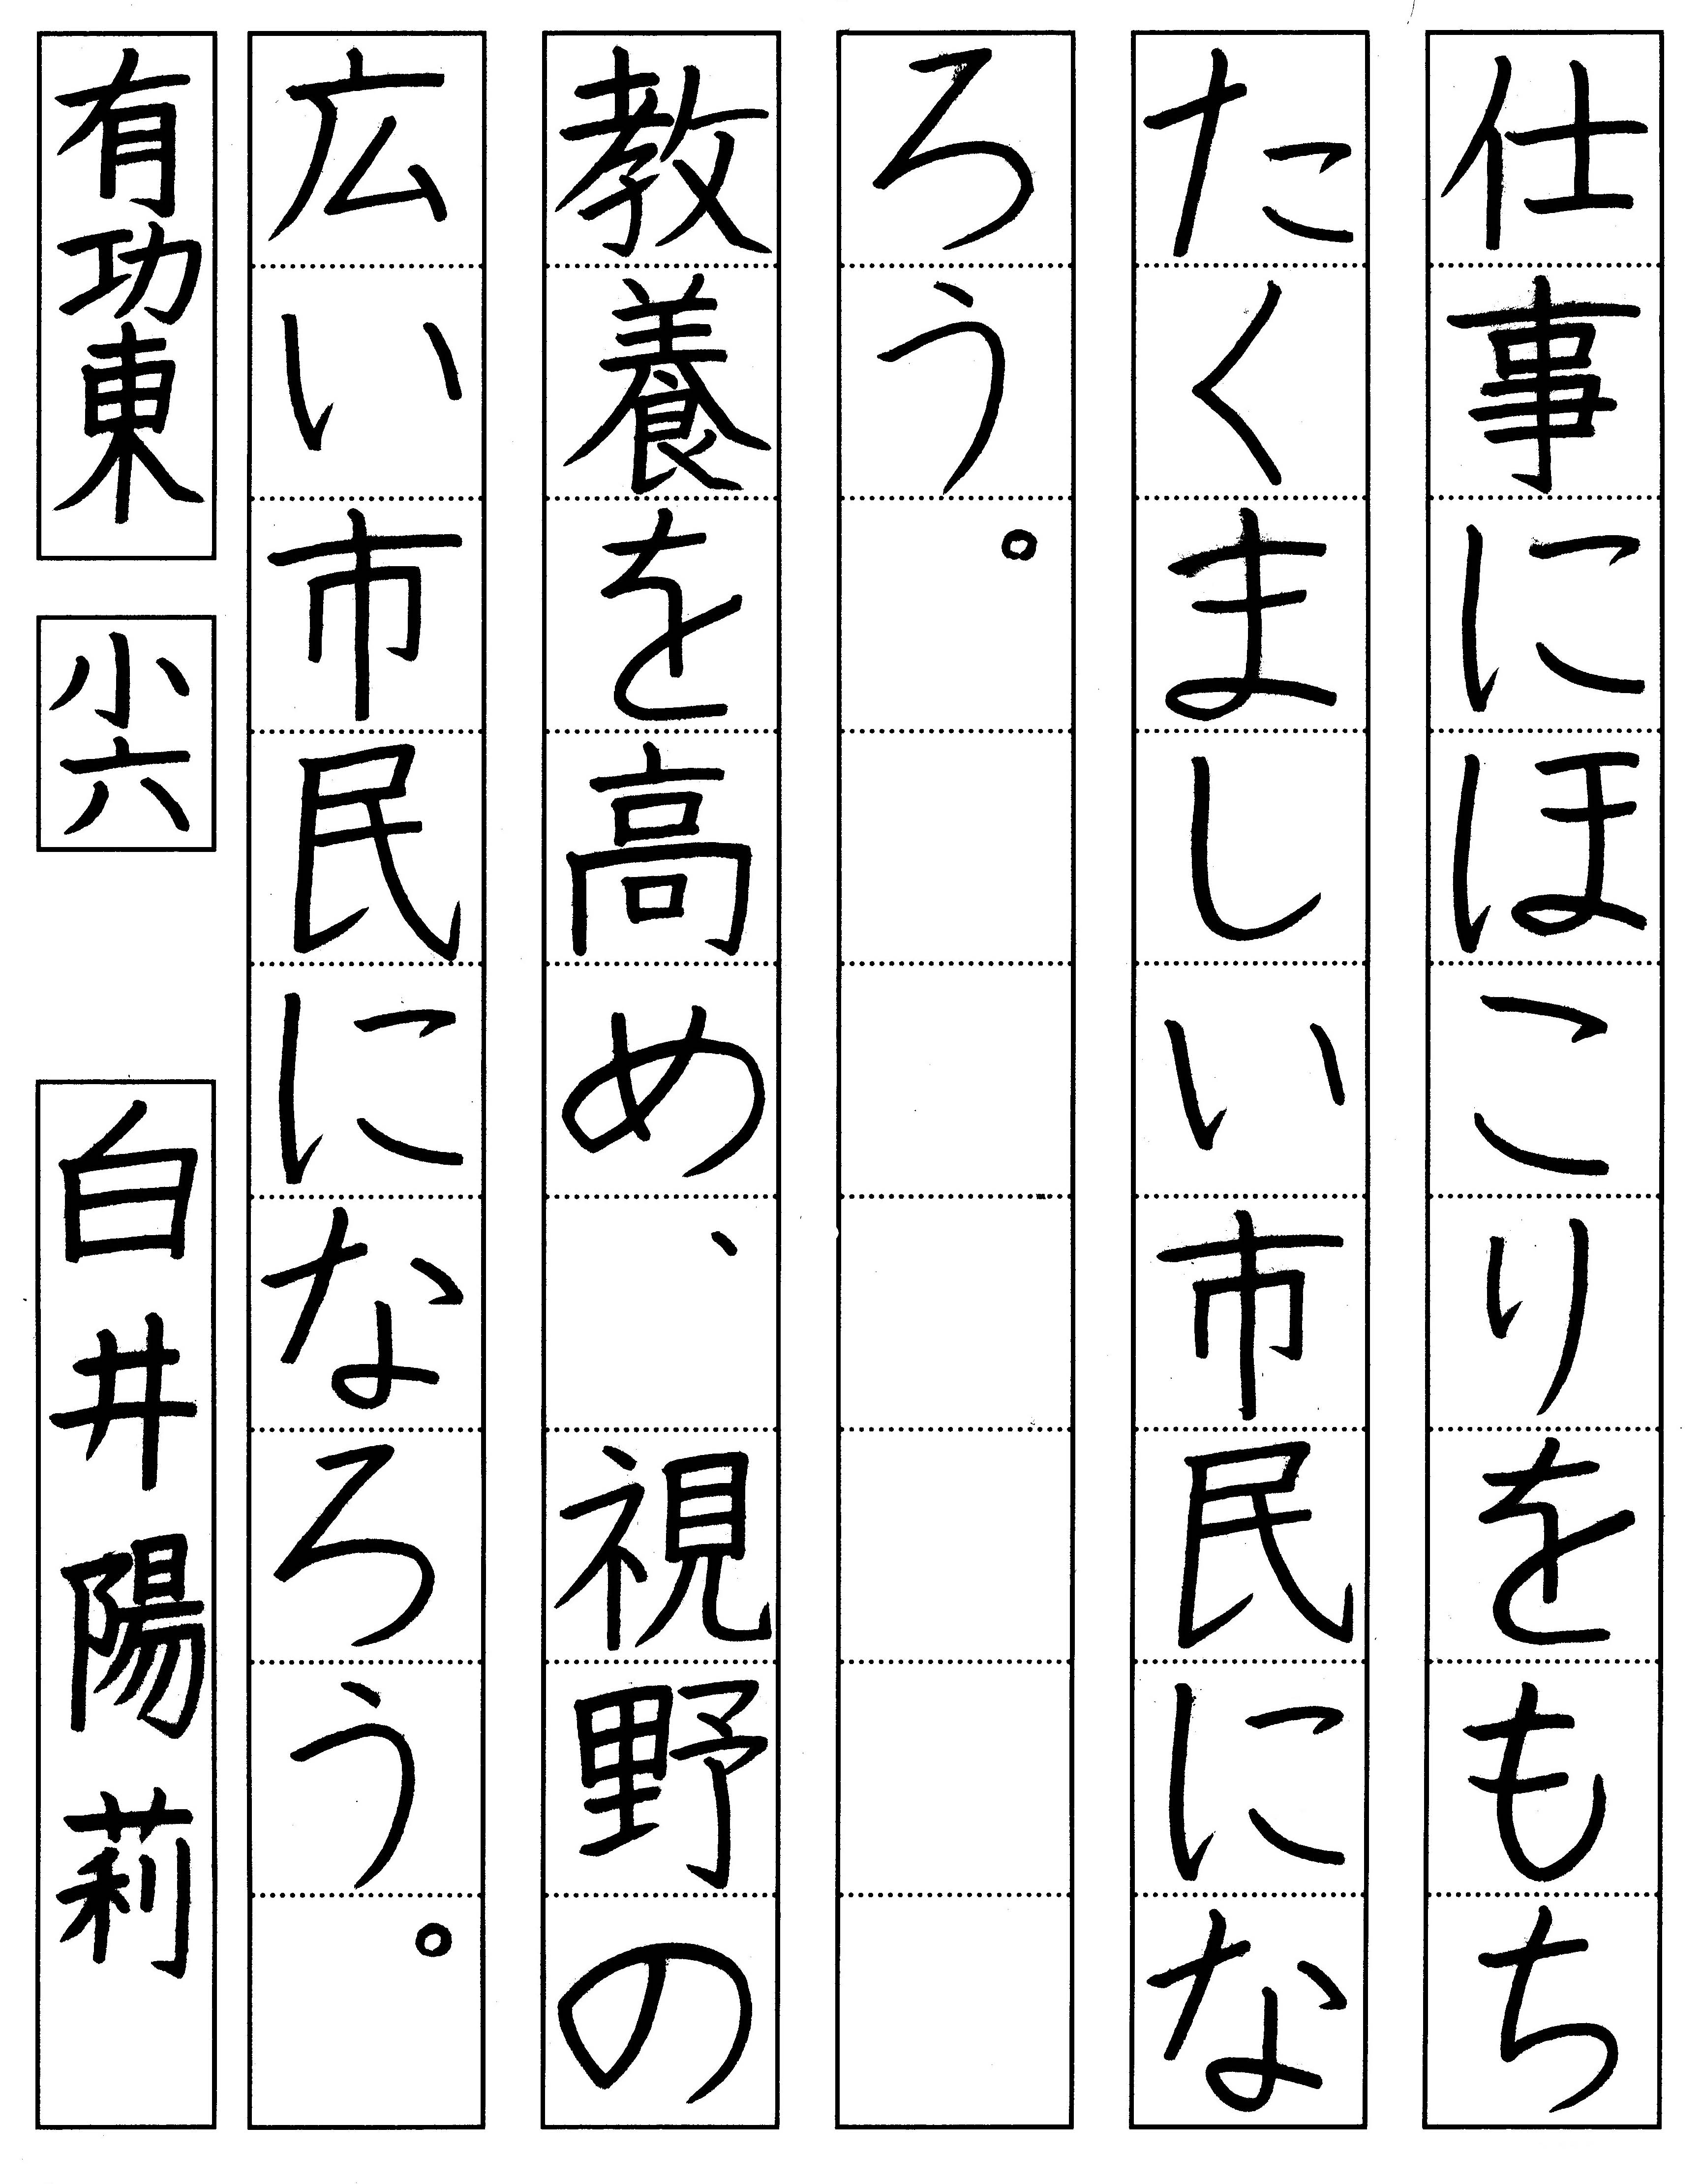 仕事にほこりをもち
たくましい市民にな
ろう。
教養を高め、視野の
広い市民になろう。
有功東
小六
白井陽莉